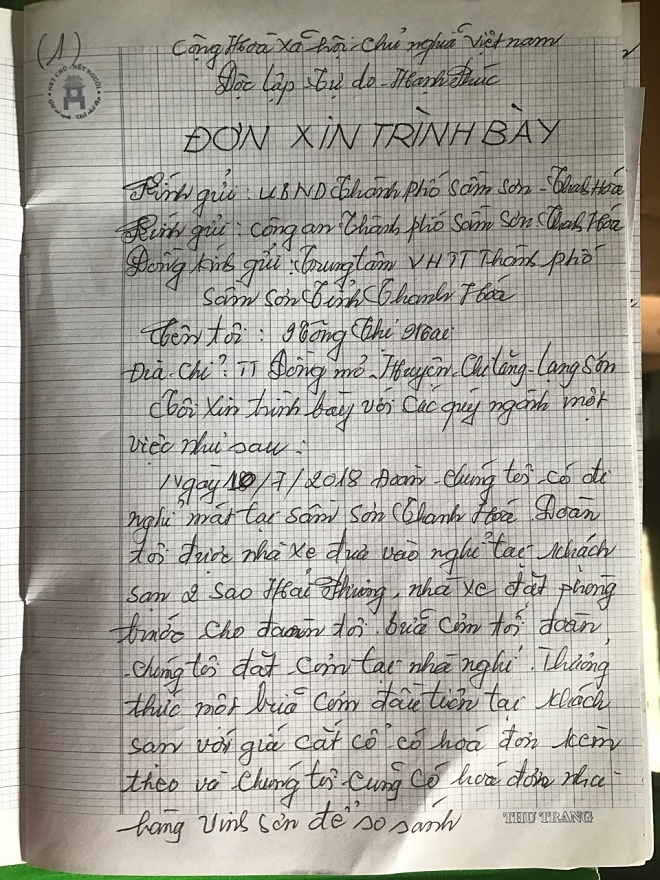 (1)
Cộng Hoà xã hội Chủ nghiã Việt nam
Độc lập - Tự do - Hạnh Phúc
NÉT CHỮ - NẾT NGƯỜI
ĐƠN XIN TRÌNH BÀY
Kính gửi : UBND Thành phố Sầm Sơn - Thanh Hoá
Kính gửi : Công an Thành phố Sầm Sơn Thanh Hoá
Đồng kính gửi : Trung tâm VHTT Thành phố
Sầm Sơn Tỉnh Thanh Hoá
Tên tôi : Nông Thị Mai
Địa chỉ : TT Đồng mỏ Huyện Chi lăng - Lạng Sơn
Tôi Xin trình bày với Các quý ngành một
việc như sau :
Ngày 10/7/2018 Đoàn Chúng tôi có đi
nghỉ mát tại Sầm Sơn Thanh Hoá Đoàn
tôi được nhà xe đưa vào nghỉ tại Khách
sạn 2 sao Hải Phương, nhà xe đặt phòng
trước cho đoàn tôi. buổi cơm tối đoàn
chúng tôi đặt Cơm tại nhà nghỉ. Thưởng
thức một buổi Cơm đầu tiên tại Khách
sạn với giá cắt cổ có hoá đơn kèm
theo và chúng tôi cũng có hoá đơn nhà
hàng Vinh Sơn để so sánh
THU TRANG